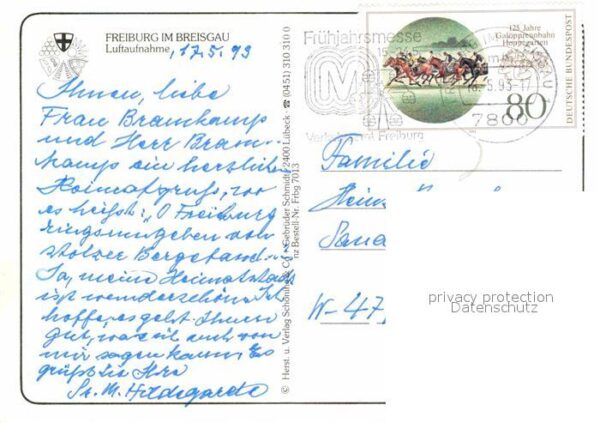 FREIBURG IM BREISGAU
Luftaufnahme
17.5.93
Ihnen, liebe
Frau Bramkamp
und Herr Bram-
kamp ein herzlicher
Heimatgruß, wo
es heißt: "O Freiburg
ringsumgeben von
stolzer Bergeband..."
Ja, meine Heimatstadt
ist wunderschön. Ich
hoffe, es geht Ihnen
gut, was ich auch von
mir sagen kann. Es
grüßt Sie Ihre
Sr. M. Hildegardis
© Herst. u. Verlag Schöning & Co + Gebrüder Schmidt 2400 Lübeck · ☎ (0451) 310 310 0
Bestell-Nr. Frbg 7013
Frühjahrsmesse
M
Freiburg
125 Jahre
Galopprennbahn
Hoppegarten
80
DEUTSCHE BUNDESPOST
5.93-17
7800
Familie
W-47
privacy protection
Datenschutz